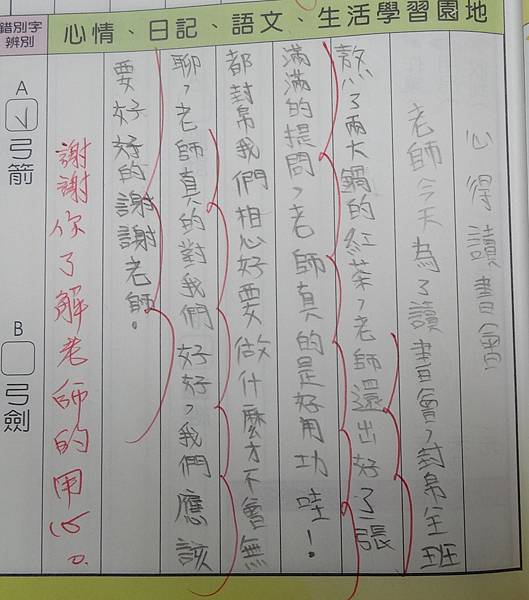 心情、日記、語文、生活學習園地
心得讀書會
老師今天為了讀書會，幫全班
熬了兩大鍋的紅茶，老師還出好了一張
滿滿的提問，老師真的是好用功哇！
都幫我們想好要做什麼才不會無
聊，老師真的對我們好好，我們應該
要好好的謝謝老師。
謝謝你了解老師的用心。
錯別字
辨別
A ✓ 弓箭
B 弓劍